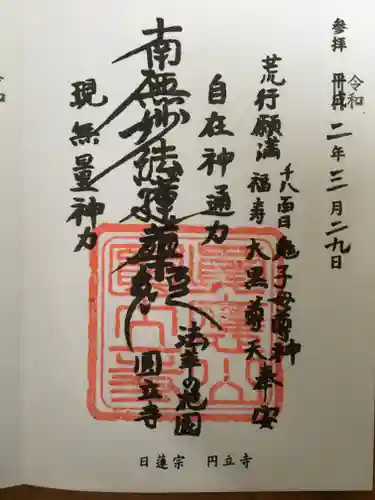 参拝 平成 令和 二年三月二九日
千八百日 鬼子母尊神
荒行願満 福寿大黒尊天奉安
自在神通力
法華の花園
南無妙法蓮華経
圓立寺
現無量神力
日蓮宗 円立寺
令和